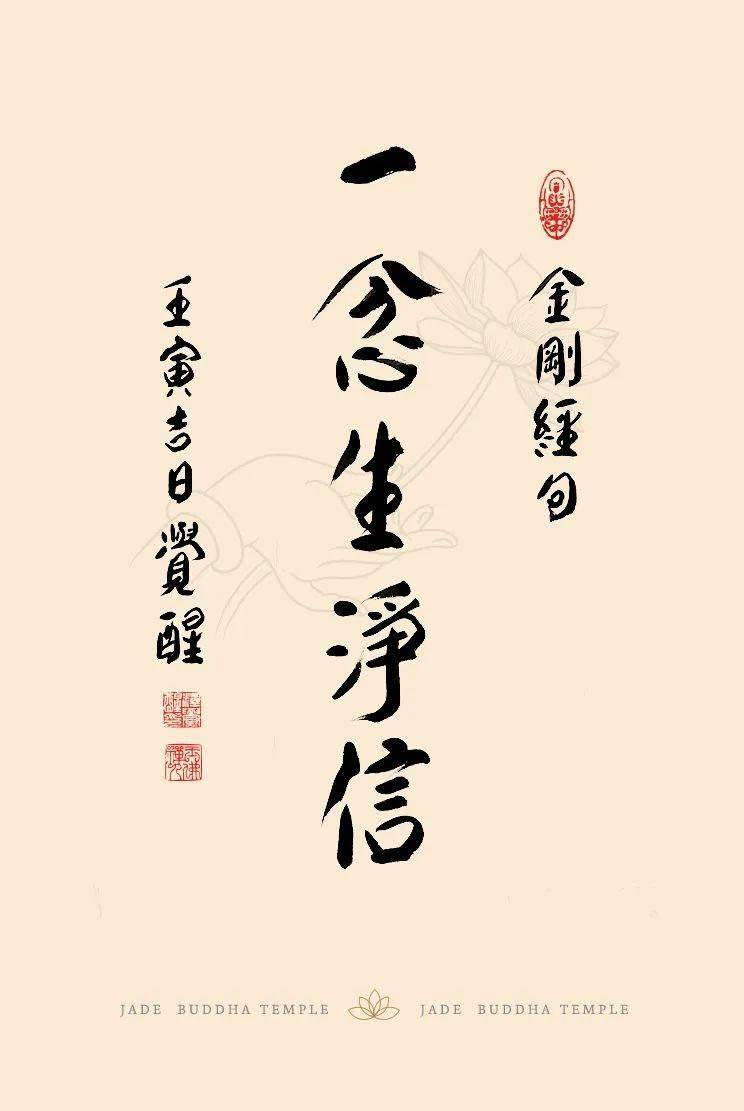 金剛經句
一念生淨信
壬寅吉日覺醒
JADE BUDDHA TEMPLE JADE BUDDHA TEMPLE